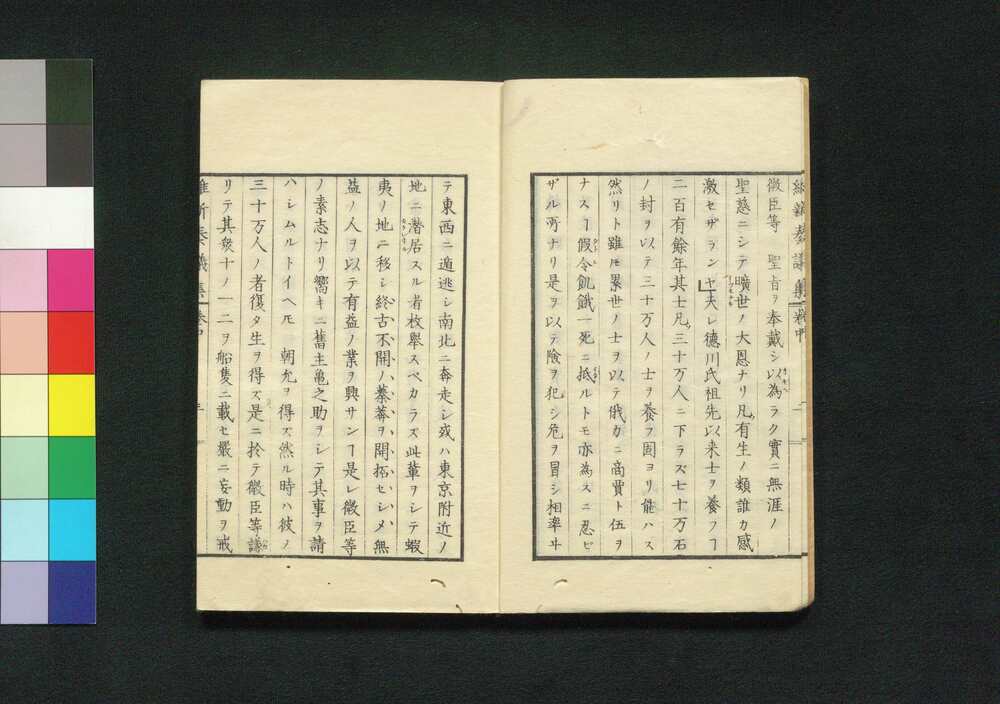 微臣等 聖旨ヲ奉戴シ以為ラク實ニ無涯ノ
聖慈ニシテ曠世ノ大恩ナリ凡有生ノ類誰カ感
激セザランヤ夫レ德川氏祖先以来士ヲ養フヿ
二百有餘年其士凡三十万人ニ下ラズ七十万石
ノ封ヲ以テ三十万人ノ士ヲ養フ固ヨリ能ハス
然リト雖𪜈累世ノ士ヲ以テ俄カニ商賈ト伍ヲ
ナスヿ假令飢餓一死ニ抵ルトモ亦為スニ忍ビ
ザル所ナリ是ヲ以テ險ヲ犯シ危ヲ冒シ相率ヰ
テ東西ニ遁逃シ南北ニ奔走シ或ハ東京附近ノ
地ニ潛居スル者枚擧スベカラズ此輩ヲシテ蝦
夷ノ地ニ移シ終古不開ノ蓁莽ヲ開拓セシメ無
益ノ人ヲ以テ有益ノ業ヲ興サンヿ是レ微臣等
ノ素志ナリ嚮キニ舊主亀之助ヲシテ其事ヲ請
ハシムルトイヘ𪜈 朝允ヲ得ズ然ル時ハ彼ノ
三十万人ノ者復タ生ヲ得ズ是ニ於テ微臣等議
リテ其衆十ノ一二ヲ船隻ニ載セ嚴ニ妄動ヲ戒